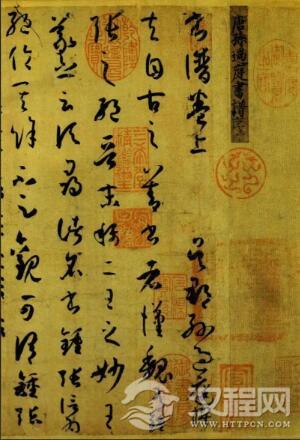 唐孫過庭書譜
書譜卷上 吳郡孫過庭
夫自古之善書者漢魏有鍾
張之絕晉末稱二王之妙王
羲之云頃尋諸名書鍾張信為
絕倫其餘不足觀可謂鍾張
汉程网
HTTPCN.COM